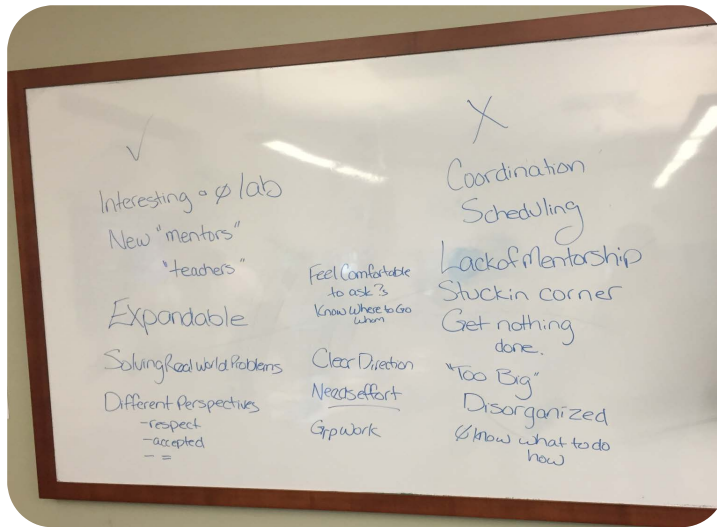 ✓
Interesting ∘ ∅ lab
New "mentors"
"teachers"
Expandable
Solving Real World Problems
Different Perspectives
-respect
-accepted
- =
Feel Comfortable
to ask ?s
Know Where to Go
Whom
Clear Direction
Needs effort
Grp Work
X
Coordination
Scheduling
Lack of Mentorship
Stuck in corner
Get nothing
done.
"Too Big"
Disorganized
∅ know what to do
how